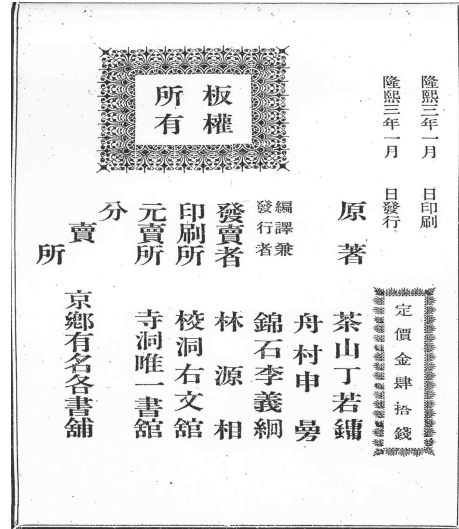 隆熙三年一月　日印刷
隆熙三年一月　日發行
定價金肆拾錢
板權
所有
原著　茶山丁若鏞
舟村申曼
編譯兼
發行者　錦石李義絅
發賣者　林源相
印刷所　校洞右文舘
元賣所　寺洞唯一書舘
分賣所　京鄉有名各書舖